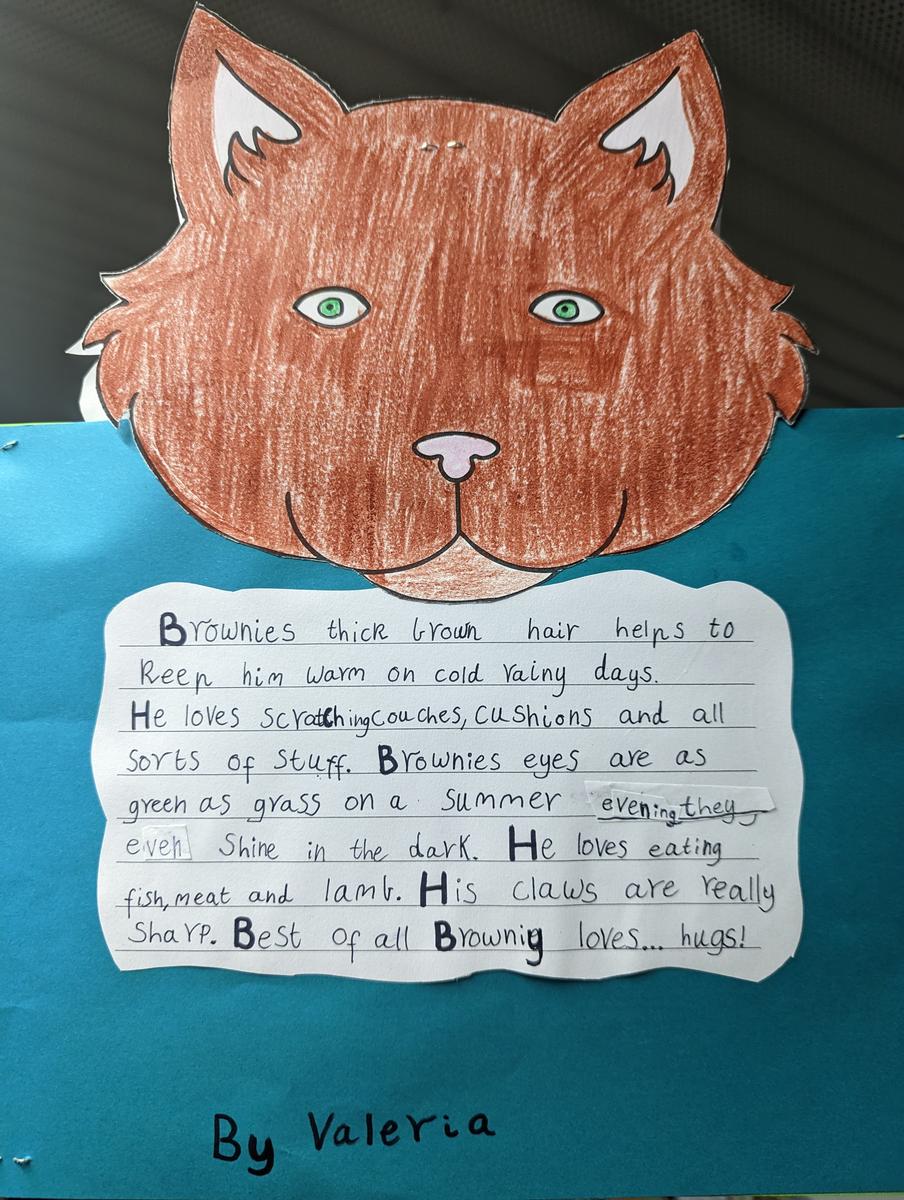 Brownies thick brown hair helps to
keep him warm on cold rainy days.
He loves scratching couches, cushions and all
sorts of stuff. Brownies eyes are as
green as grass on a summer evening they
even shine in the dark. He loves eating
fish, meat and lamb. His claws are really
sharp. Best of all Brownie loves... hugs!
By Valeria